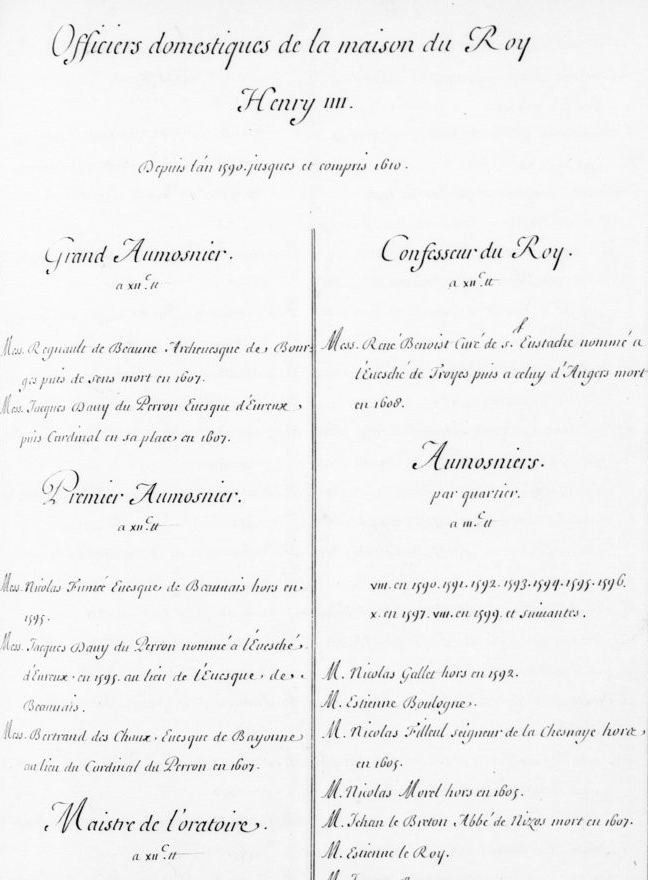 Officiers domestiques de la maison du Roy
Henry IIII.
Depuis l'an 1590. jusques et compris 1610.
Grand Aumosnier.
a xii.c lt
Mess. Regnault de Beaune Archevesque de Bour-
ges puis de sens mort en 1607.
Mess. Jacques Davy du Perron Evesque d'Evreux,
puis Cardinal en sa place en 1607.
Premier Aumosnier.
a xii.c lt
Mess. Nicolas Fumeé Evesque de Beauvais hors en
1595.
Mess. Jacques Davy du Perron nommé a l'Evesché
d'Evreux en 1595. au lieu de l'Evesque de
Beauvais.
Mess. Bertrand des Chaux, Evesque de Bayonne
au lieu du Cardinal du Perron en 1607.
Maistre de l'oratoire.
a xii.c lt
Confesseur du Roy.
a xii.c lt
Mess. René Benoist Curé de St. Eustache nommé a
l'Evesché de Troyes puis a celuy d'Angers mort
en 1608.
Aumosniers.
par quartier.
a iii.c lt
viii. en 1590. 1591. 1592. 1593. 1594. 1595. 1596.
x. en 1597. viii. en 1599. et suivantes.
M. Nicolas Gallet hors en 1592.
M. Estienne Boulogne.
M. Nicolas Filleul seigneur de la Chesnaye hors
en 1605.
M. Nicolas Morel hors en 1605.
M. Jehan le Breton Abbé de Nizos mort en 1607.
M. Estienne le Roy.